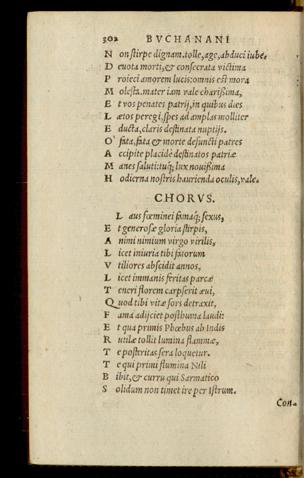 302 BVCHANANI
N on stirpe dignam. tolle, age, abduci iube.
D euota morti, & consecrata victima
P roieci amorem lucis: omnis est mora
M olesta. mater iam vale charissima,
E t vos penates patrij, in quibus dies
L ætos peregi, spes ad amplas molliter
E ducta, claris destinata nuptijs.
O fata, fata & morte defuncti patres
A ccipite placidè destinatos patriæ
M anes saluti: tuq; lux nouissima
H odierna nostris haurienda oculis, vale.
CHORVS.
L aus fœminei famaq; sexus,
E t generosæ gloria stirpis,
A nimi nimium virgo virilis,
L icet iniuria tibi fatorum
V tiliores abscidit annos,
L icet immanis feritas parcæ
T eneri florem carpserit æui,
Q uod tibi vitæ sors detraxit,
F ama adijciet posthuma laudi:
E t qua primis Phœbus ab Indis
R utilæ tollit lumina flammæ,
T e posteritas sera loquetur.
T e qui primi flumina Nili
B ibit, & curru qui Sarmatico
S olidum non timet ire per Istrum.
Con-